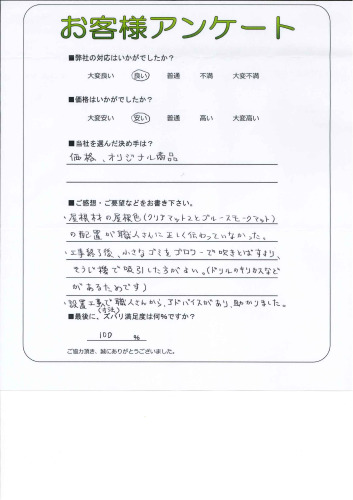 お客様アンケート
■弊社の対応はいかがでしたか？
大変良い 良い 普通 不満 大変不満
■価格はいかがでしたか？
大変安い 安い 普通 高い 大変高い
■当社を選んだ決め手は？
価格、オリジナル商品
■ご感想・ご要望などをお書き下さい。
・屋根材の屋根色(クリアマットSとブルースモークマット)
の配置が職人さんに正しく伝わっていなかった。
・工事終了後、小さなゴミをブロワーで吹きとばすより、
そうじ機で吸引した方がよい。(ドリルのキリカスなど
があるためです)
・設置工事で職人さんから、アドバイスがあり、助かりました。
(寸法)
■最後に、ズバリ満足度は何%ですか？
100 %
ご協力頂き、誠にありがとうございました。